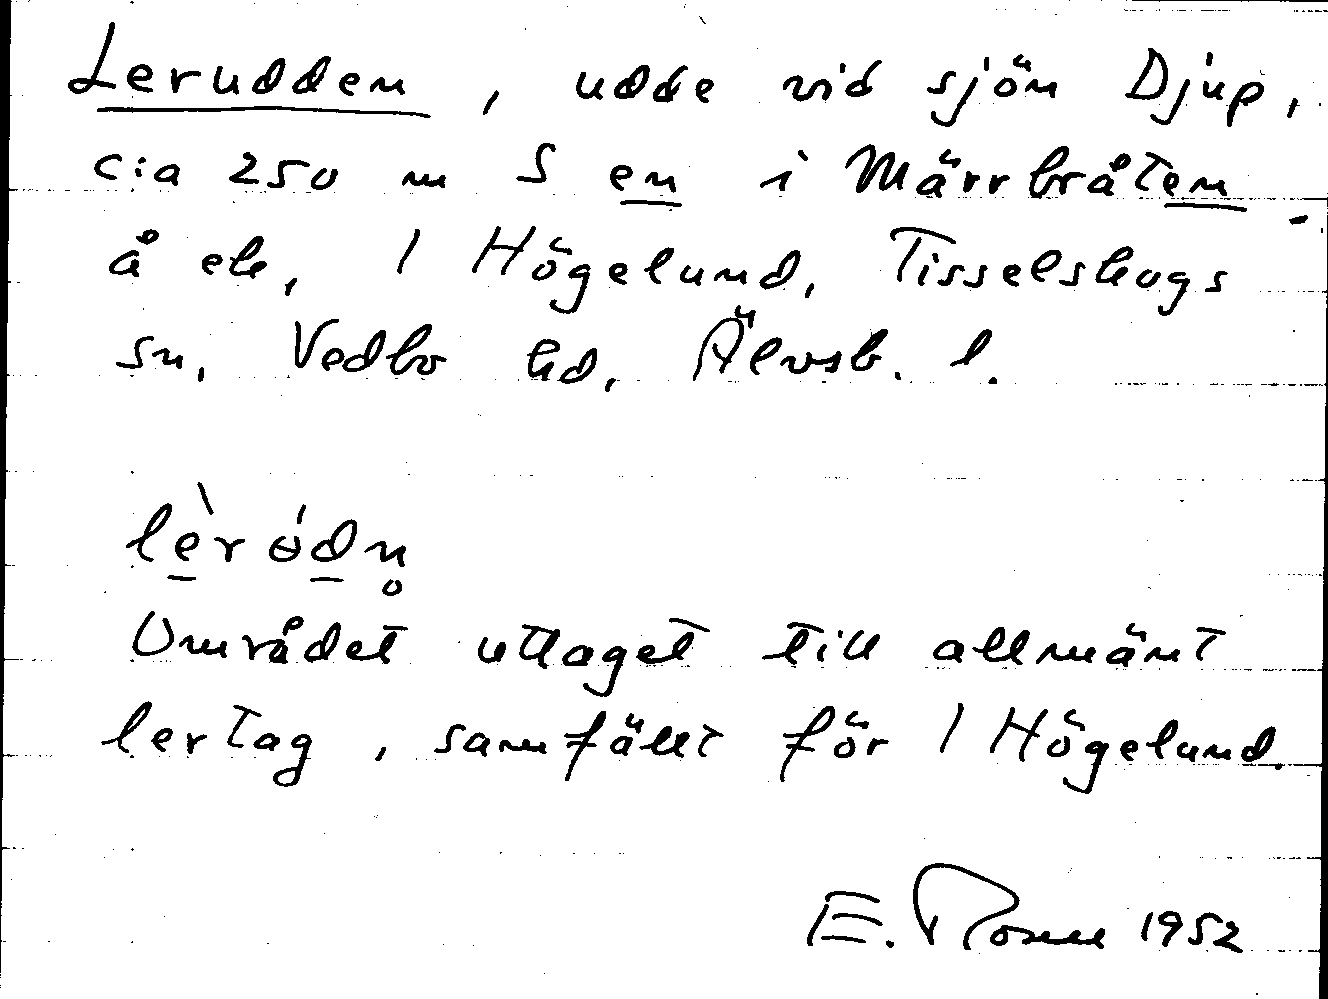 Lerudden, udde vid sjön Djup,
c:a 250 m S en i Märrbråten
å ek, 1 Högelund, Tisselskogs
sn, Vedbo hd, Älvsb. l.
lèrödn̥
Området uttaget till allmänt
lertag, samfällt för 1 Högelund.
E. 1952